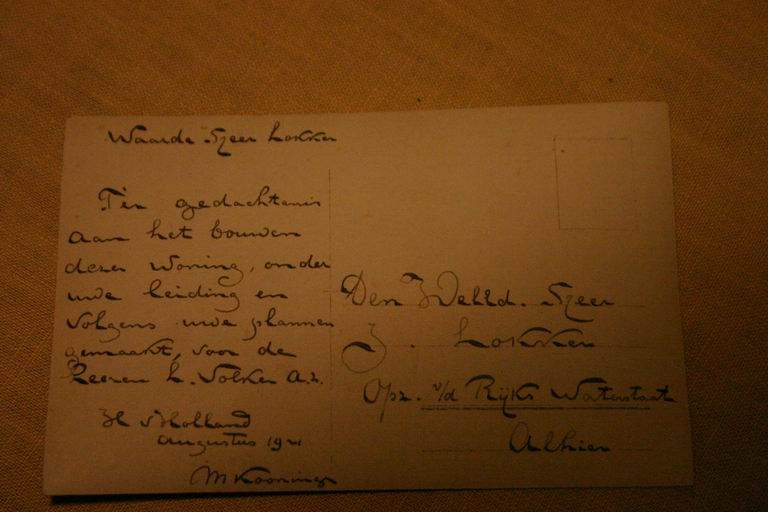 Waarde Heer Lokker
Ter gedachtenis
aan het bouwen
dezer woning, onder
uwe leiding en
volgens uwe plannen
gemaakt, voor de
Heeren L. Volker A.z.
H v Holland
Augustus 1921
M Kooning
Den WelEd. Heer
J. Lokker
Opz. v/d Rijks Waterstaat
Alhier